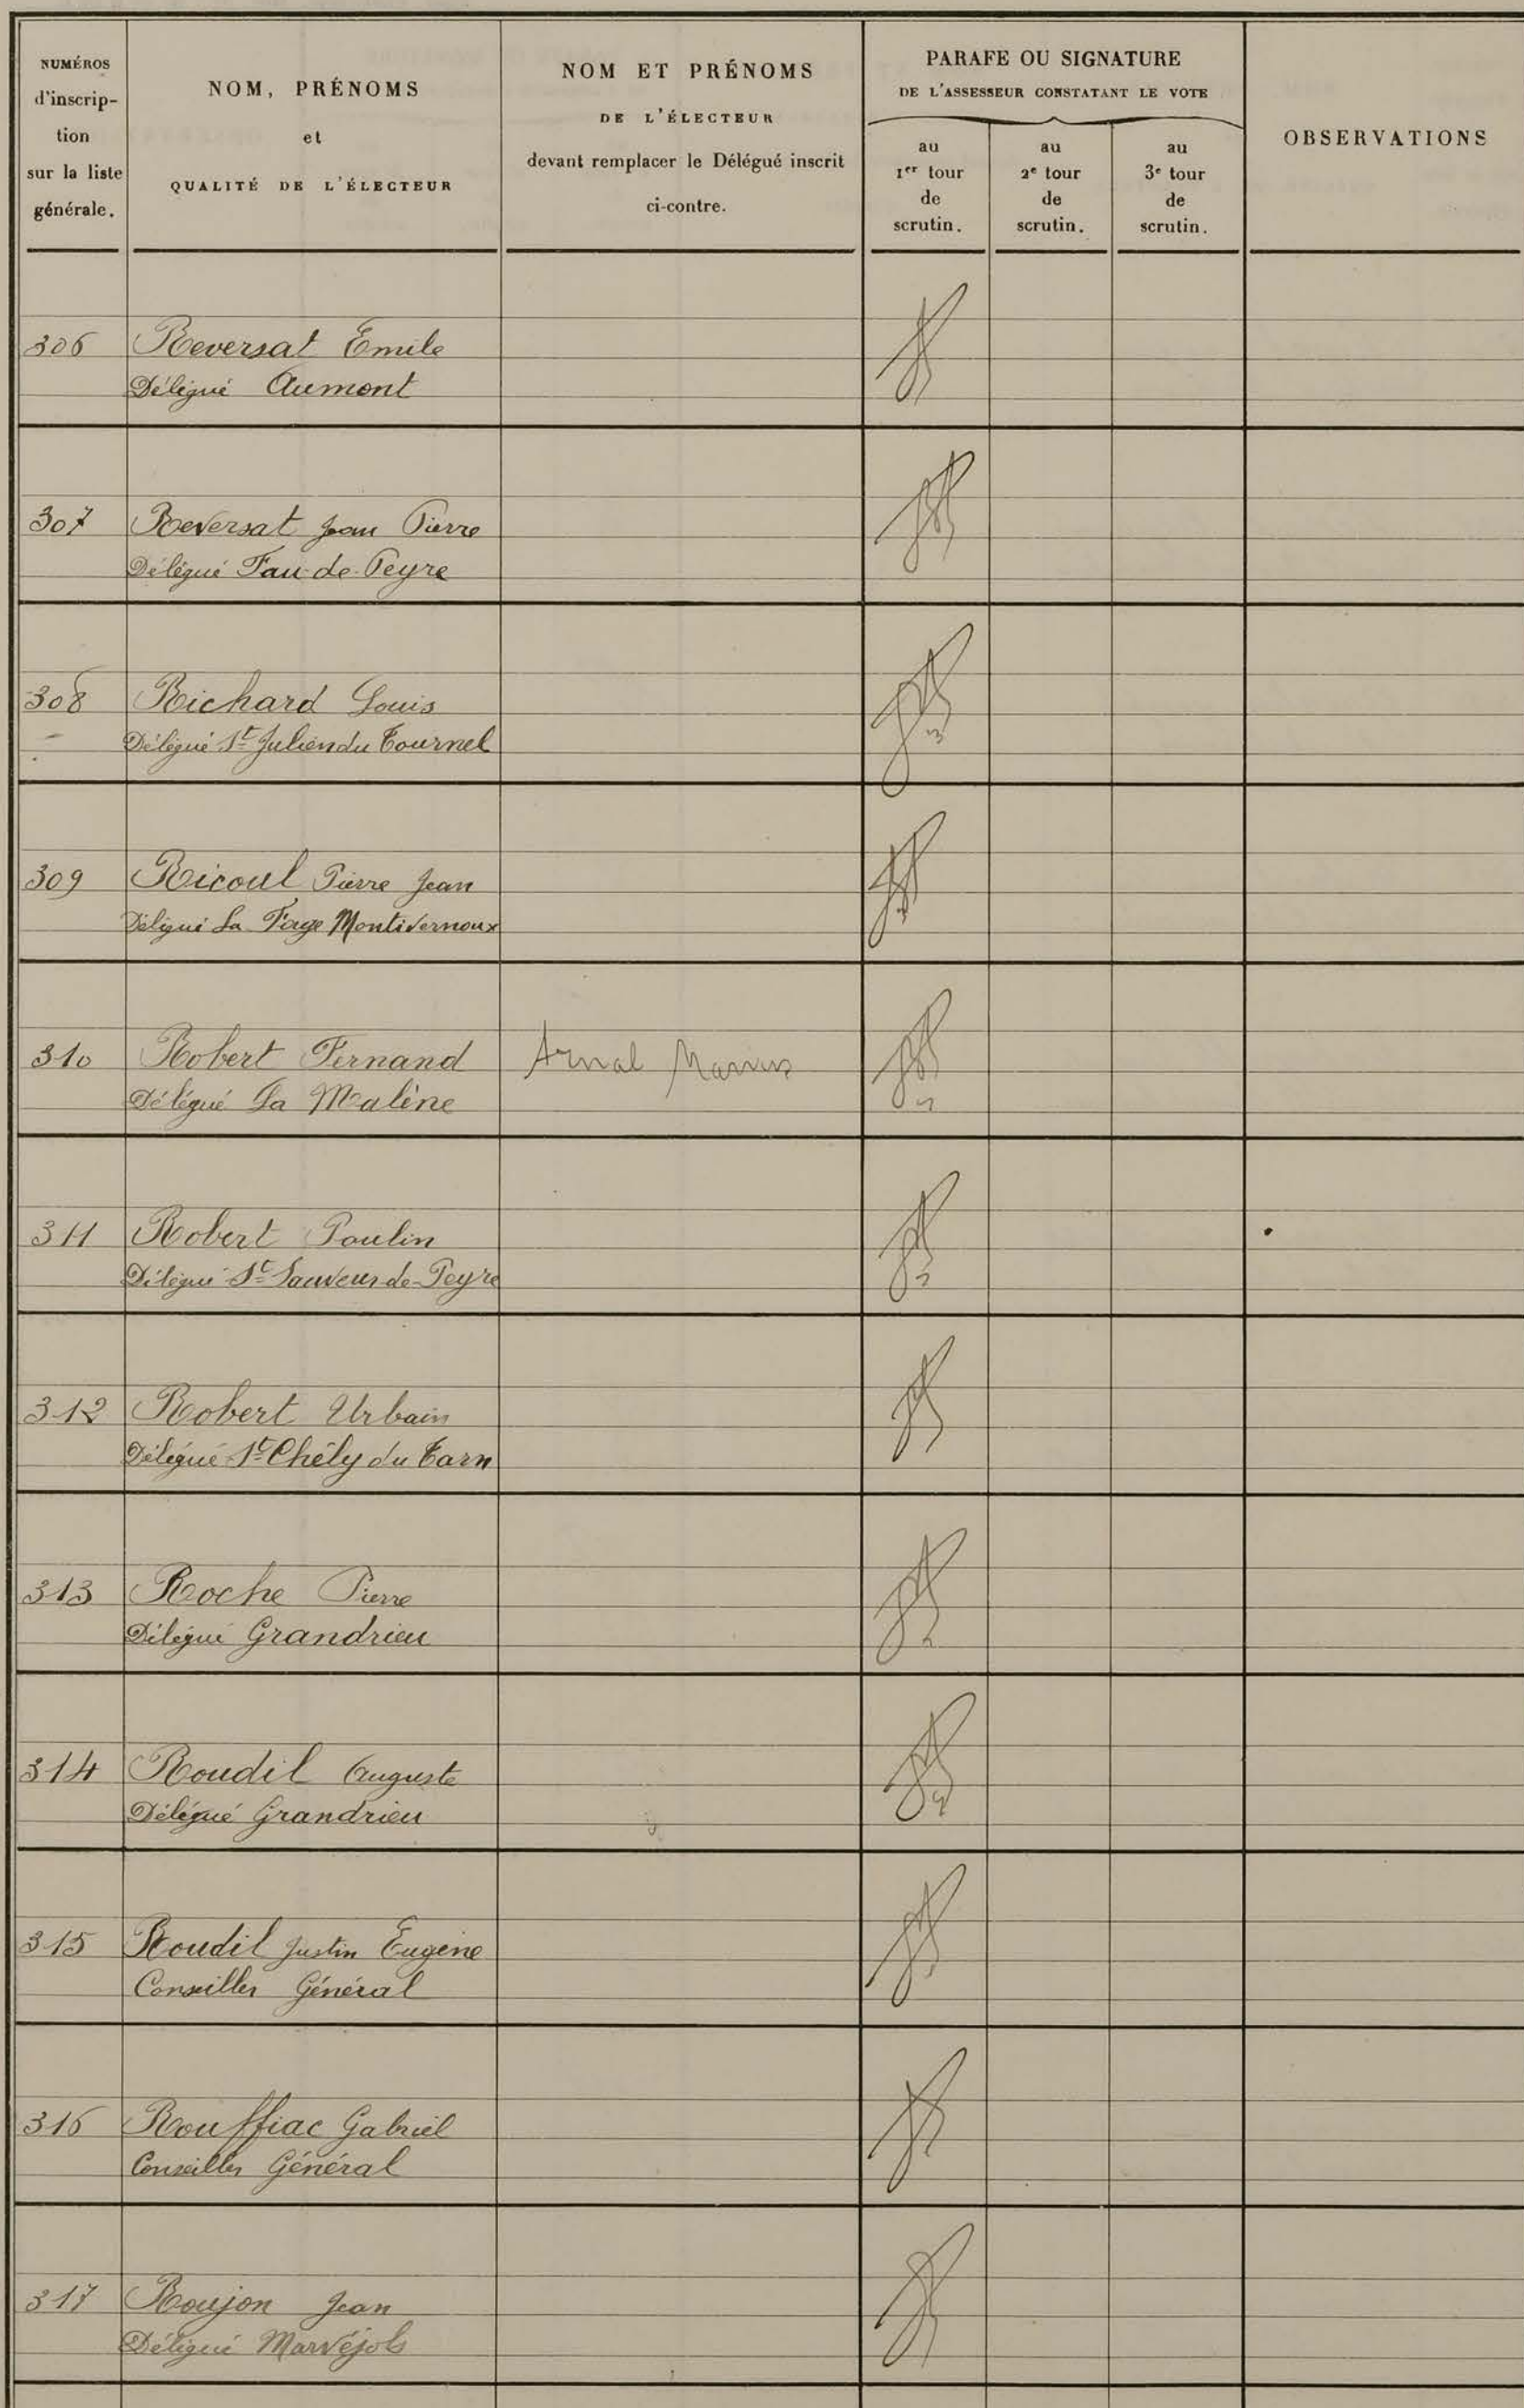 NUMÉROS
d'inscrip-
tion
sur la liste
générale.
NOM, PRÉNOMS
et
QUALITÉ DE L'ÉLECTEUR
NOM ET PRÉNOMS
DE L'ÉLECTEUR
devant remplacer le Délégué inscrit
ci-contre.
PARAFE OU SIGNATURE
DE L'ASSESSEUR CONSTATANT LE VOTE
au
1er tour
de
scrutin.
au
2e tour
de
scrutin.
au
3e tour
de
scrutin.
OBSERVATIONS
306 Reversat Emile
Délégué Aumont
307 Reversat Jean Pierre
Délégué Fau-de-Peyre
308 Richard Louis
Délégué St Julien du Tournel
309 Ricoul Pierre Jean
Délégué La Fage Montivernoux
310 Robert Fernand Arnal
Délégué La Malène
311 Robert Paulin
Délégué St Sauveur-de-Peyre
312 Robert Urbain
Délégué St Chély du Tarn
313 Roche Pierre
Délégué Grandrieu
314 Roudil Auguste
Délégué Grandrieu
315 Roudil Justin Eugène
Conseiller Général
316 Rouffiac Gabriel
Conseiller Général
317 Roujon Jean
Délégué Marvéjols